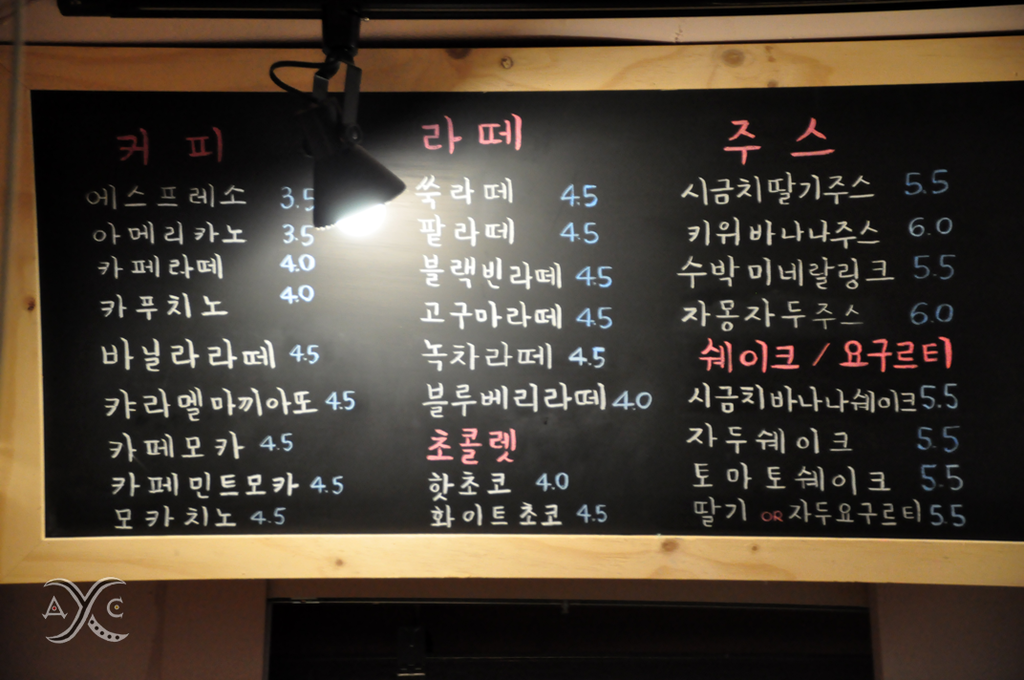 커피
에스프레소 3.5
아메리카노 3.5
카페라떼 4.0
카푸치노 4.0
바닐라라떼 4.5
캬라멜마끼아또 4.5
카페모카 4.5
카페민트모카 4.5
모카치노 4.5
라떼
쑥라떼 4.5
팥라떼 4.5
블랙빈라떼 4.5
고구마라떼 4.5
녹차라떼 4.5
블루베리라떼 4.0
초콜렛
핫초코 4.0
화이트초코 4.5
주스
시금치딸기주스 5.5
키위바나나주스 6.0
수박미네랄링크 5.5
자몽자두주스 6.0
쉐이크/요구르티
시금치바나나쉐이크 5.5
자두쉐이크 5.5
토마토쉐이크 5.5
딸기 OR 자두요구르티 5.5
A C